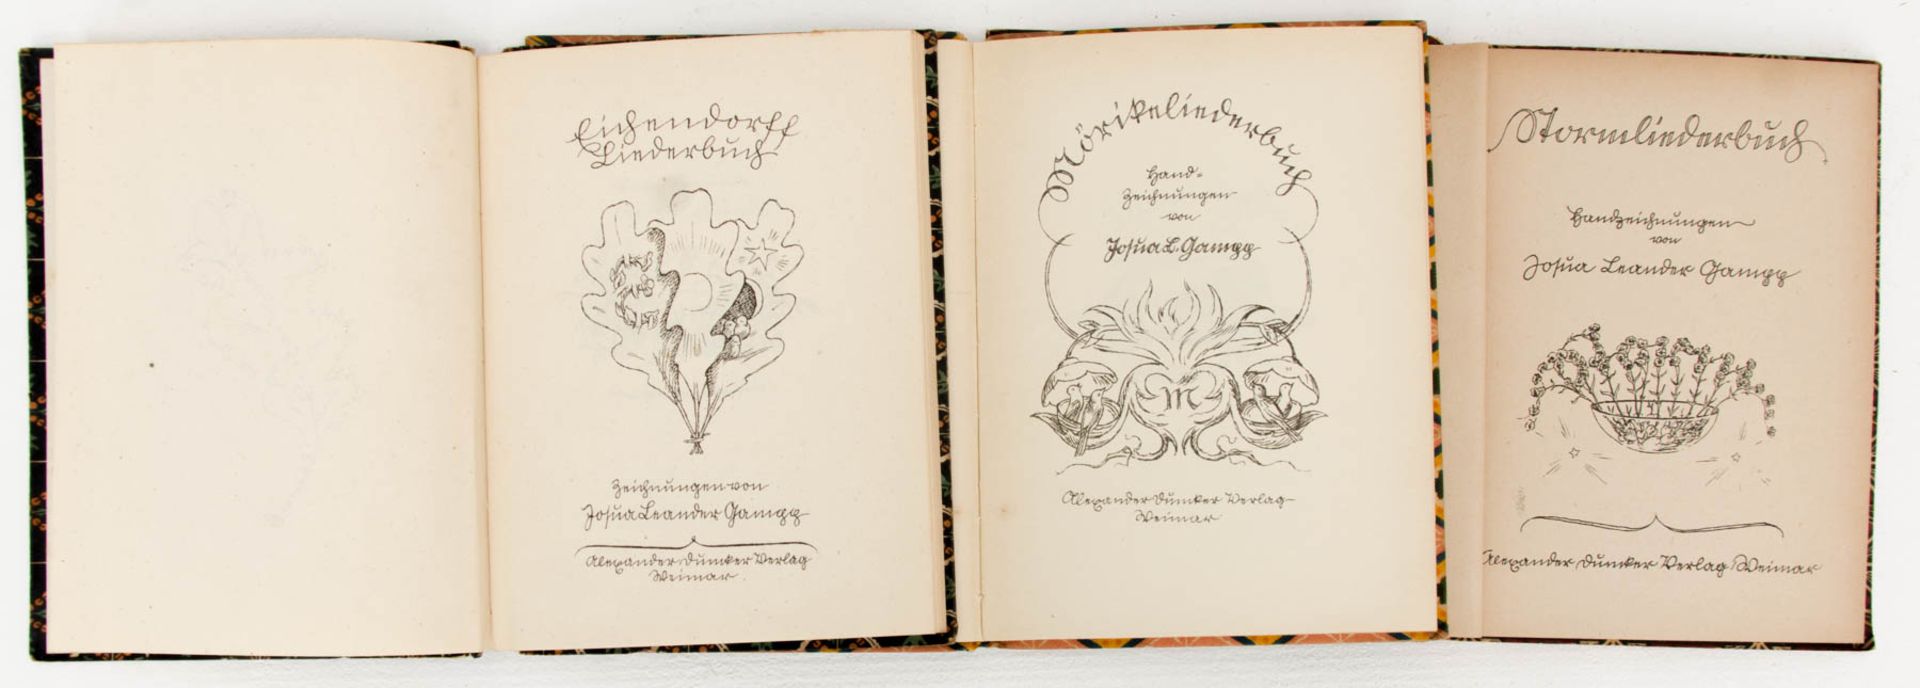 Eichendorff
Liederbuch
Zeichnungen von
Josua Leander Gampp
Alexander Duncker Verlag
Weimar.
Mörikeliederbuch
Hand-
zeichnungen
von
Josua L. Gampp
M
Alexander Duncker Verlag
Weimar
Stormliederbuch
Handzeichnungen
von
Josua Leander Gampp
Alexander Duncker Verlag Weimar